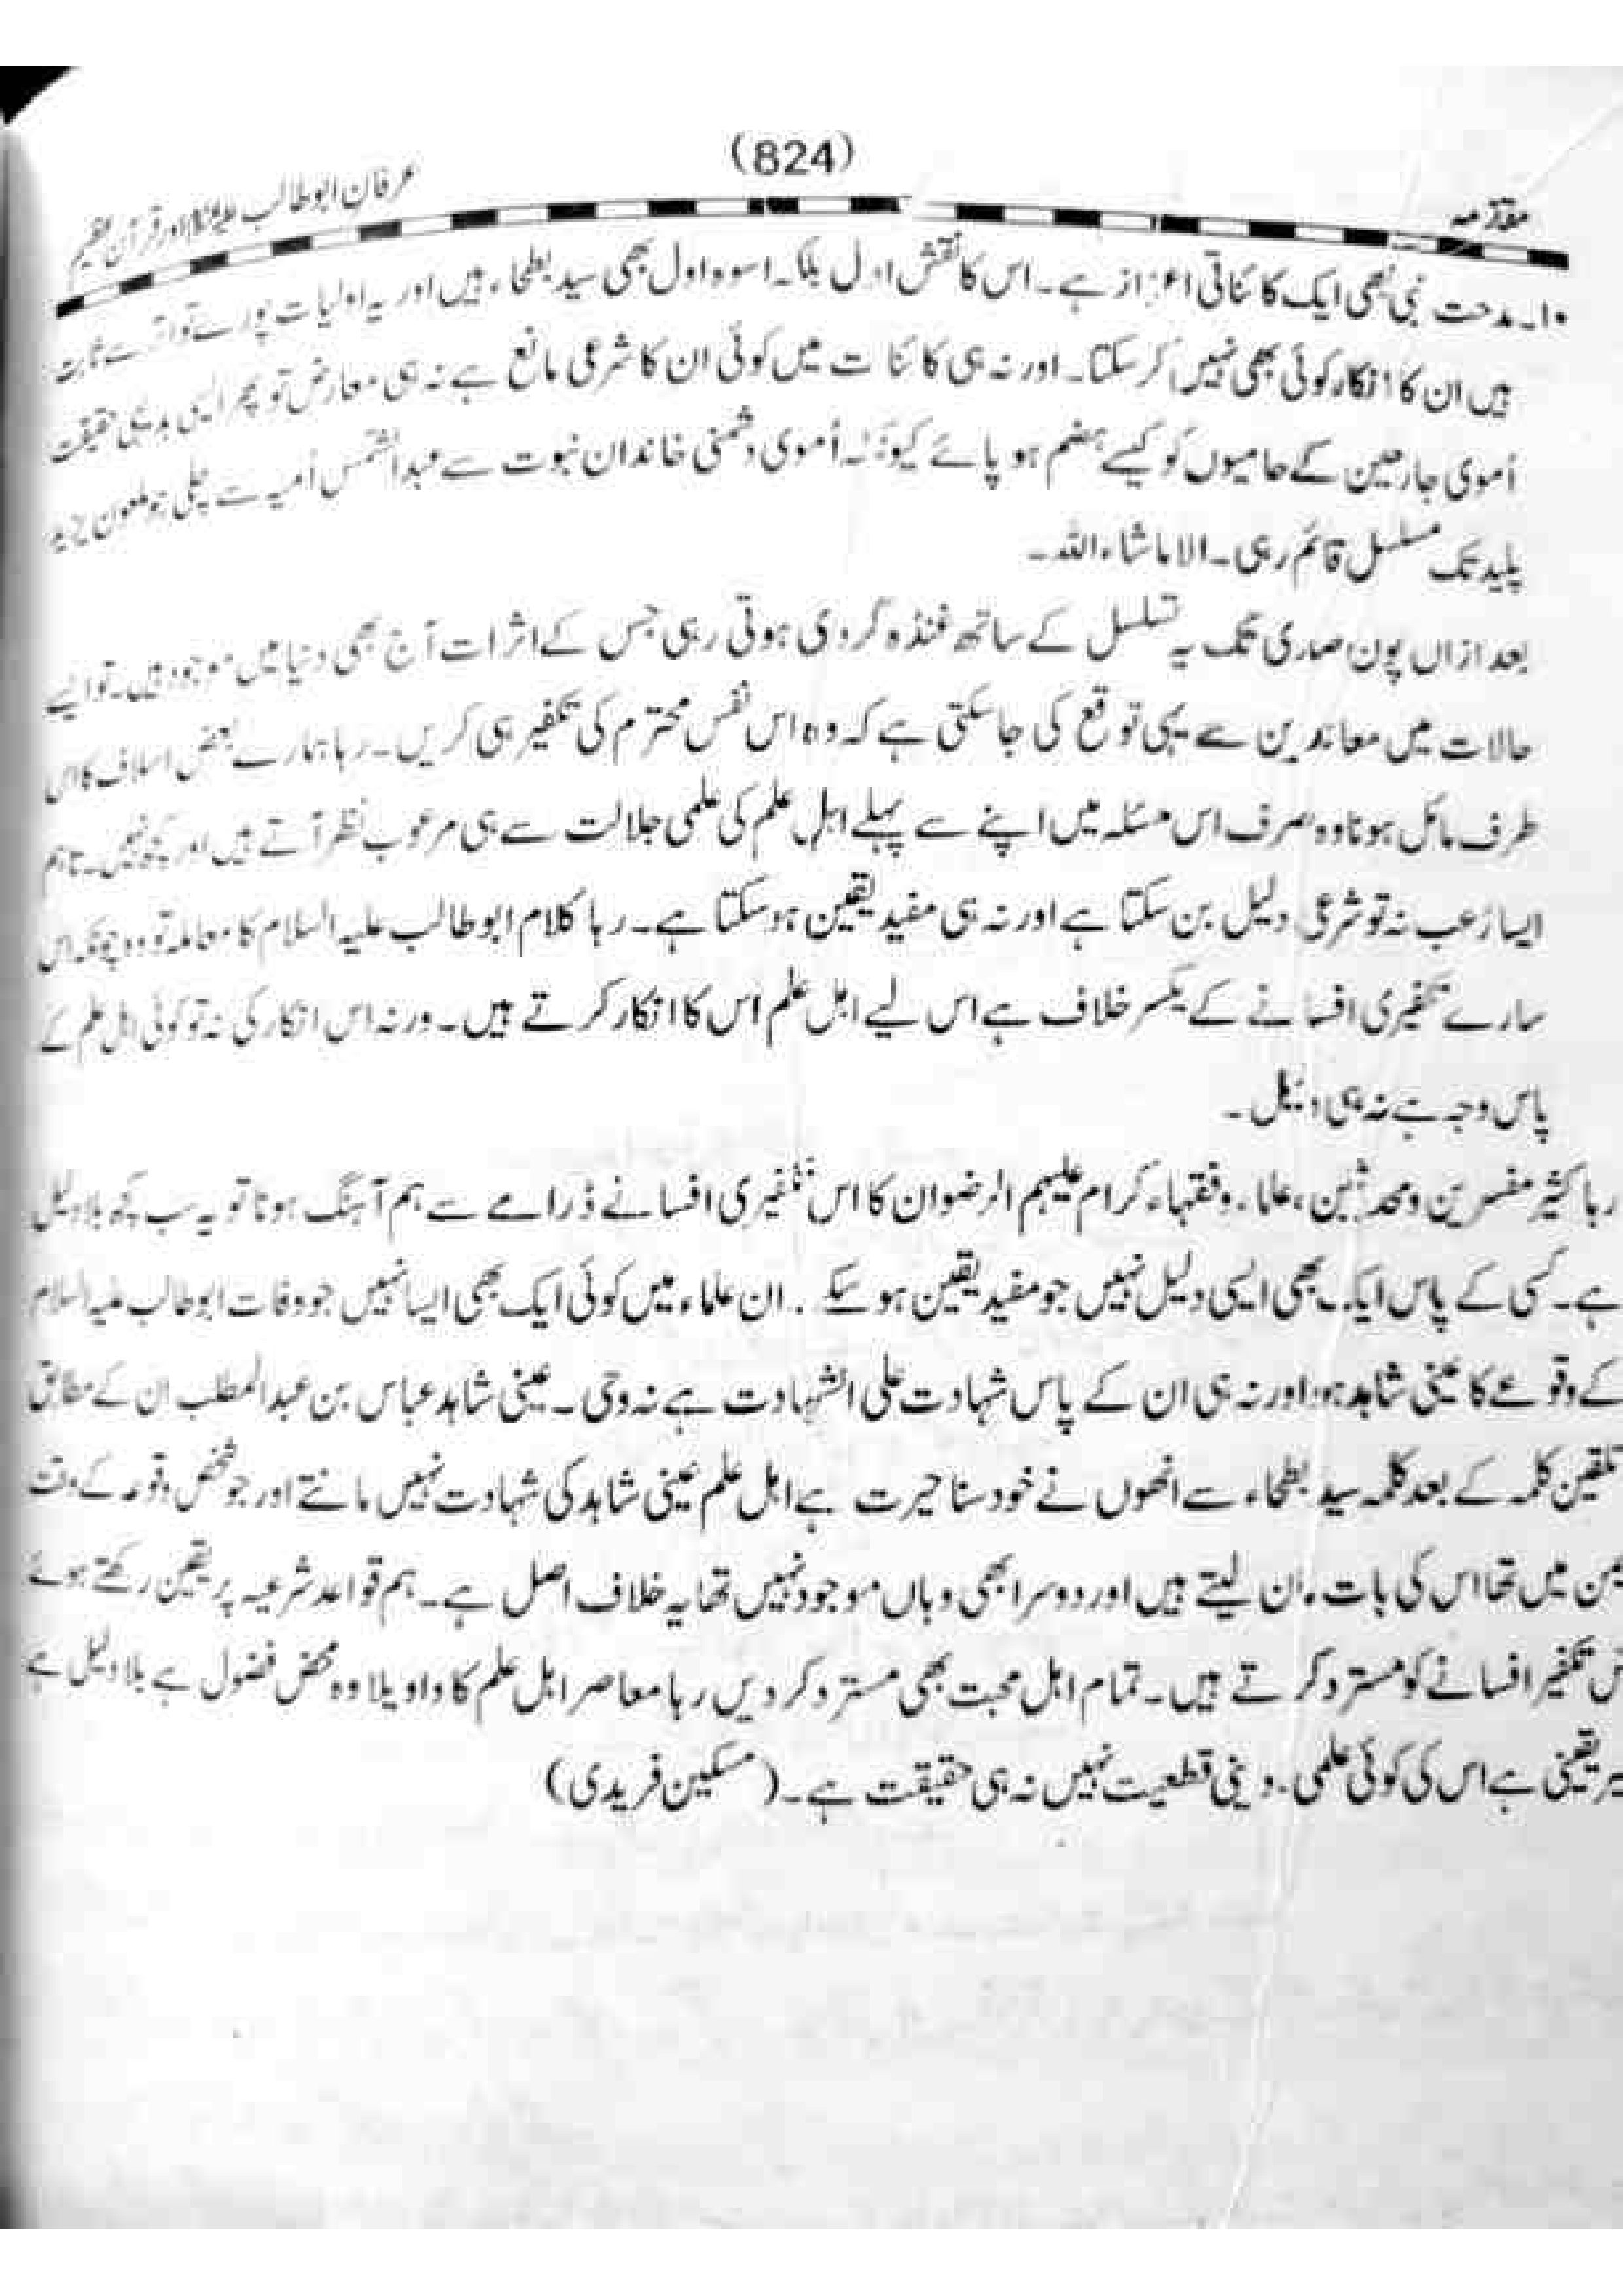 (824)
مقدمہ
عرفان ابوطالب علیہ السلام اور قرآن عظیم
۱۰۔ مدحت نبی بھی ایک کائناتی اعزاز ہے۔ اس کا نقش اول بلکہ اسوہ اول بھی سید بطحاء ہیں اور یہ اولیات پورے تواتر سے ثابت
ہیں ان کا انکار کوئی بھی نہیں کر سکتا۔ اور نہ ہی کائنات میں کوئی ان کا شرعی مانع ہے نہ ہی معارض تو پھر ایسی بدیہی حقیقت
اُموی جارحین کے حامیوں کو کیسے ہضم ہو پائے کیونکہ اُموی دشمنی خاندان نبوت سے عبدالشمس اُمیہ سے چلی جو ملعون یزید
پلید تک مسلسل قائم رہی۔ الا ماشاء اللہ۔
بعد ازاں پون صدی تک یہ تسلسل کے ساتھ غنڈہ گردی ہوتی رہی جس کے اثرات آج بھی دنیا میں موجود ہیں۔ تو ایسے
حالات میں معاندین سے یہی توقع کی جا سکتی ہے کہ وہ اس نفس محترم کی تکفیر ہی کریں۔ رہا ہمارے بعض اسلاف کا اس
طرف مائل ہونا وہ صرف اس مسئلہ میں اپنے سے پہلے اہل علم کی علمی جلالت سے ہی مرعوب نظر آتے ہیں اور کچھ نہیں۔ تاہم
ایسا رُعب نہ تو شرعی دلیل بن سکتا ہے اور نہ ہی مفید یقین ہو سکتا ہے۔ رہا کلام ابوطالب علیہ السلام کا معاملہ تو وہ چونکہ اس
سارے تکفیری افسانے کے یکسر خلاف ہے اس لیے اہل علم اس کا انکار کرتے ہیں۔ ورنہ اس انکار کی نہ تو کوئی اہل علم کے
پاس وجہ ہے نہ ہی دلیل۔
رہا کثیر مفسرین و محدثین، علماء و فقہاء کرام علیہم الرضوان کا اس تکفیری افسانے ڈرامے سے ہم آہنگ ہونا تو یہ سب کچھ بلا دلیل
ہے۔ کسی کے پاس ایک بھی ایسی دلیل نہیں جو مفید یقین ہو سکے۔ ان علماء میں کوئی ایک بھی ایسا نہیں جو وفات ابوطالب علیہ السلام
کے وقوعے کا عینی شاہد ہو اور نہ ہی ان کے پاس شہادت علی الشہادت ہے نہ وحی۔ عینی شاہد عباس بن عبدالمطلب ان کے مطابق
تلقین کلمہ کے بعد کلمہ سید بطحاء سے انھوں نے خود سنا حیرت ہے اہل علم عینی شاہد کی شہادت نہیں مانتے اور جو شخص وقوعہ کے وقت
یمن میں تھا اس کی بات مان لیتے ہیں اور دوسرا بھی وہاں موجود نہیں تھا یہ خلاف اصل ہے۔ ہم قواعد شرعیہ پر یقین رکھتے ہوئے
اس تکفیر افسانے کو مسترد کرتے ہیں۔ تمام اہل محبت بھی مسترد کر دیں رہا معاصر اہل علم کا واویلا وہ محض فضول ہے بلا دلیل ہے
غیر یقینی ہے اس کی کوئی علمی۔ دینی قطعیت نہیں نہ ہی حقیقت ہے۔ (مسکین فریدی)